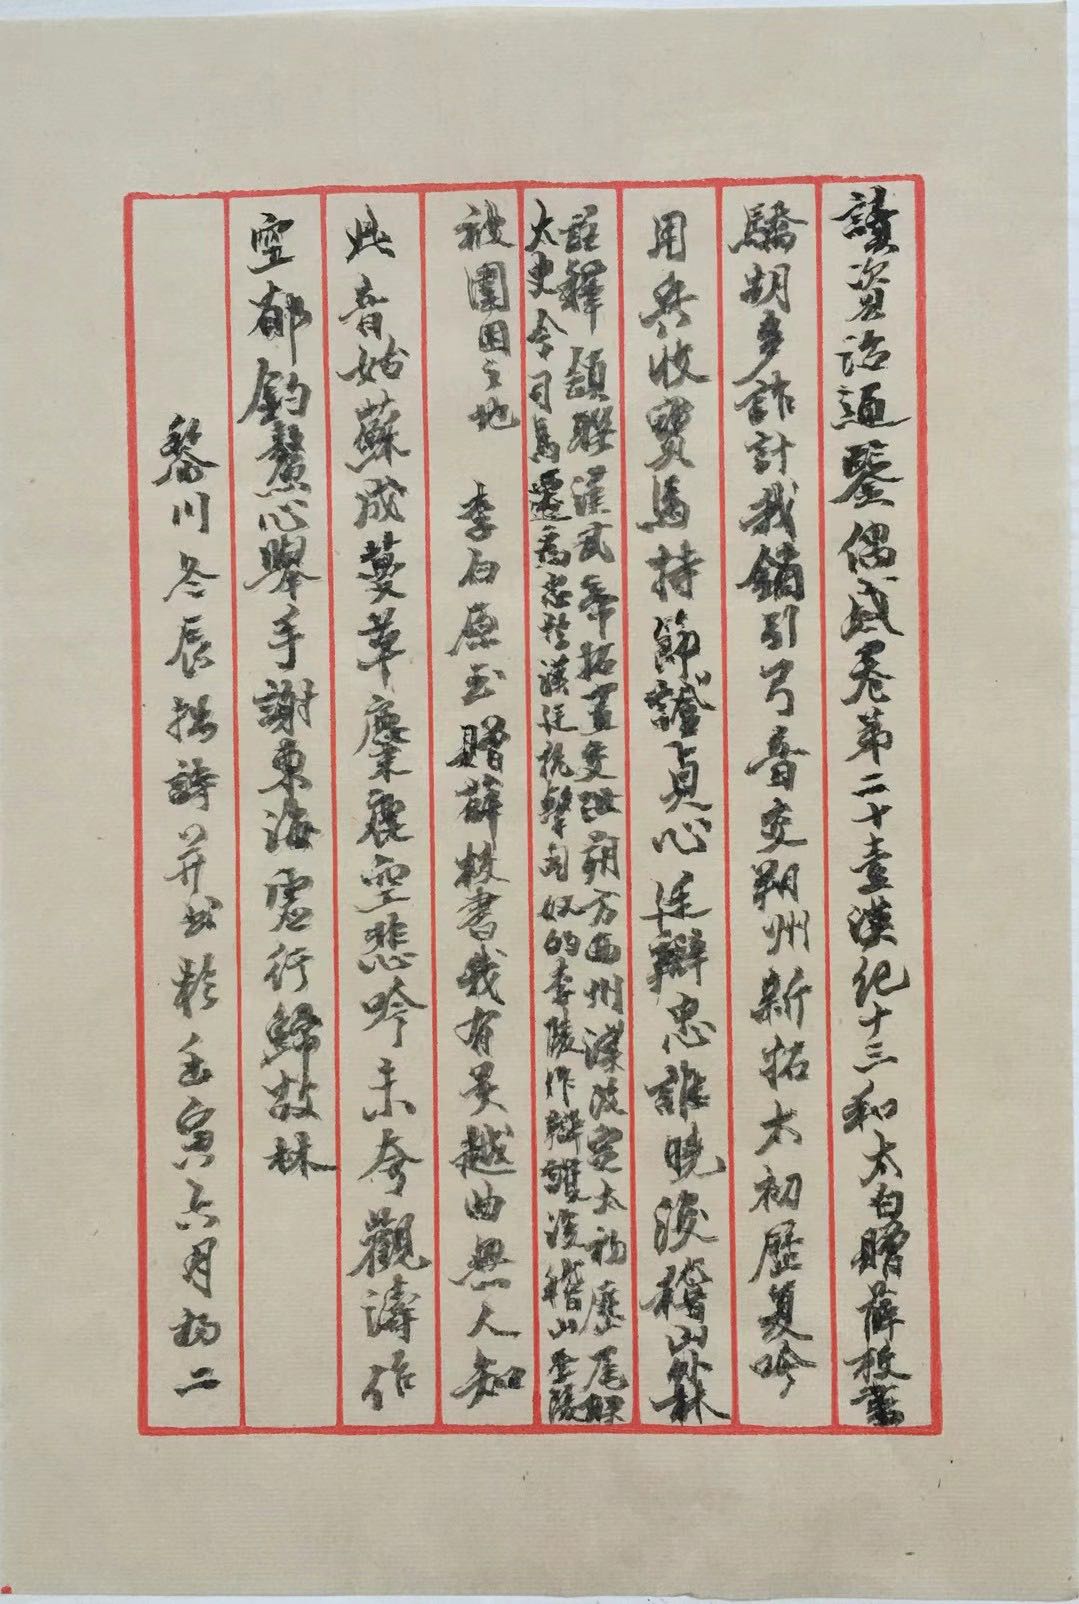 讀資治通鑒偶感卷第二十壹漢紀十三和太白贈薛校書
驕胡多詐計我鏑引弓音交朔州新拓太初歷复吟
用兵收寶馬持節證貞心廷辯忠誰曉浚稽山外林
註釋頷聯漢武帝拓置交趾朔方兩州漢改定太初歷尾聯
太史令司馬遷為忠於漢廷抗擊匈奴的李陵作辯護浚稽山李陵
被圍困之地 李白原玉贈薛校書我有吳越曲無人知
此音姑蘇成蔓草麋鹿空悲吟未夸觀濤作
空郁釣鰲心舉手謝東海虛行歸故林
黎川冬辰拙詩并書於壬寅六月初二